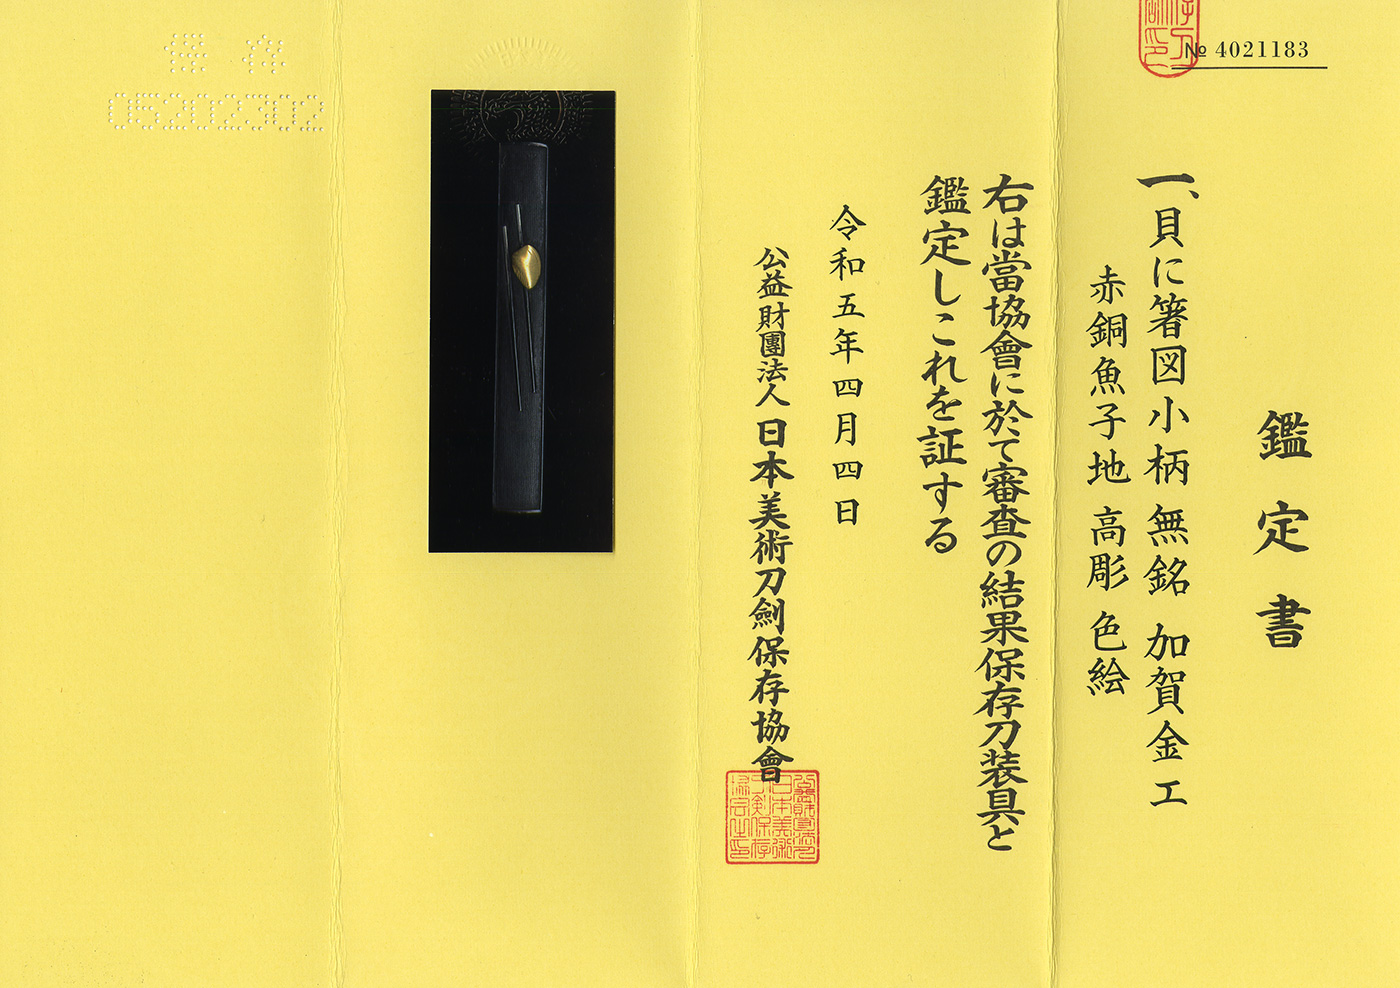 № 4021183
鑑定書
一、貝に箸図小柄 無銘 加賀金工
赤銅魚子地 高彫 色絵
右は當協會に於て審査の結果保存刀装具と
鑑定しこれを証する
令和五年四月四日
公益財團法人 日本美術刀劍保存協會
保存
05202302